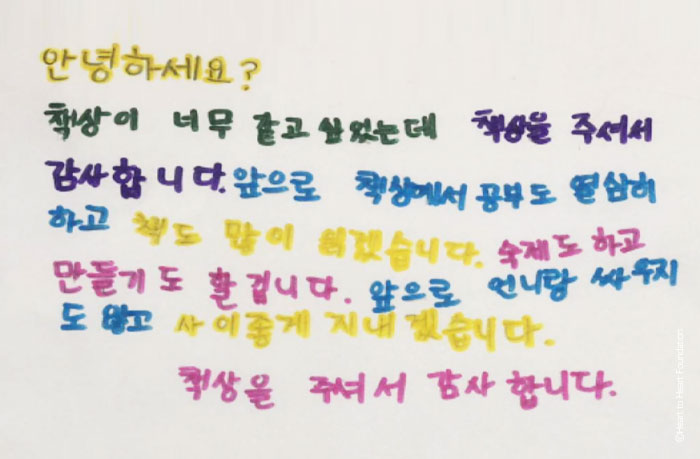 안녕하세요?
책상이 너무 갇고 싶었는데 책상을 주셔서
감사합니다. 앞으로 책상에서 공부도 열심히
하고 책도 많이 읽겠습니다. 숙제도 하고
만들기도 할겁니다. 앞으로 언니랑 싸우지
도 않고 사이좋게 지내겠습니다.
책상을 주셔서 감사합니다.
©Heart to Heart Foundation